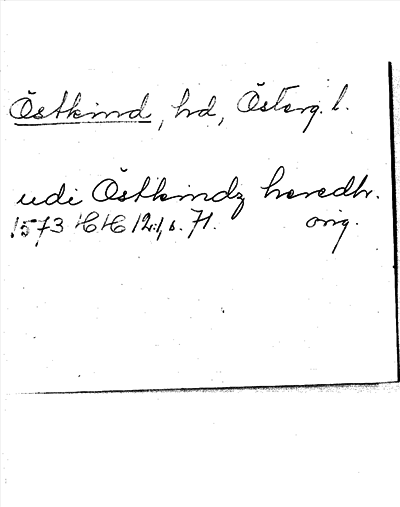 Östkind, hd, Österg. l.
udi Östkindz heredh.
1573 HH 12:1, s. 71. orig.